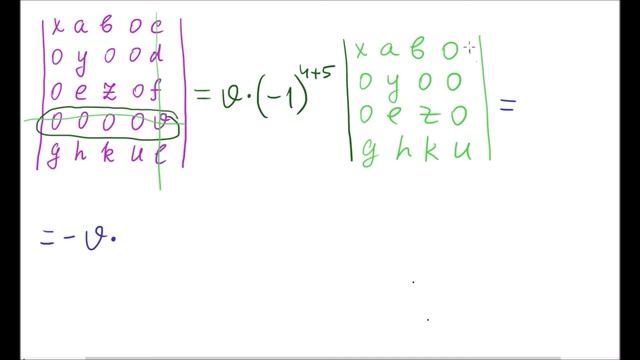 | x a b 0 c |
| 0 y 0 0 d |
| 0 e z 0 f |
| 0 0 0 0 v |
| g h k u l |
= v · (-1)^{4+5}
| x a b 0 |
| 0 y 0 0 |
| 0 e z 0 |
| g h k u |
=
= - v ·